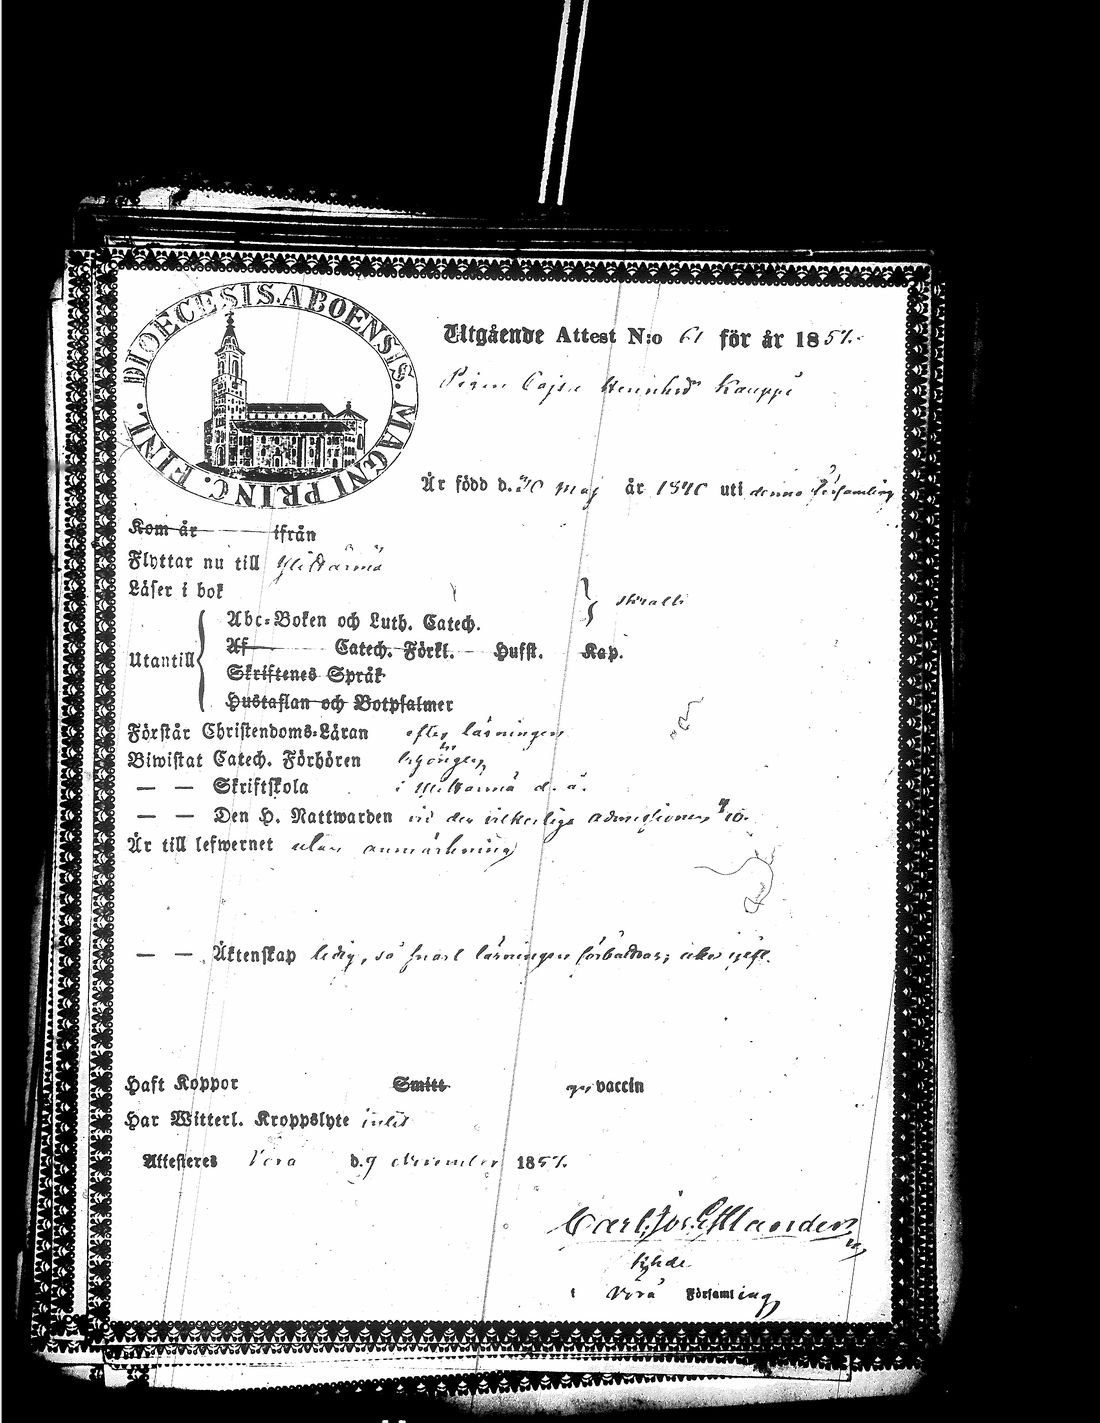 DIOECESIS. ABOENSIS. MAGNI PRINC. FINL.
Utgående Attest N:o 61 för år 1857.
Pigan Cajsa Henriksdr Kauppi
Är född d. 30 Maj år 1840 uti denna Församling
Kom år ifrån
Flyttar nu till Ylihärmä
Läser i bok
Abc-Boken och Luth. Catech.
Utantill
Af Catech. Förkl. Hufst. Kap.
Skriftenes Språk
Hustaflan och Botpsalmer
Förstår Christendoms-Läran efter läsningen
Biwistat Catech. Förhören
— — Skriftskola i Ylihärmä d. å.
— — Den H. Nattwarden vid den
Är till lefwernet utan anmärkning
— — Äktenskap ledig, så snart läsningen förbättras,
Haft Koppor Smitt vaccin
Har Witterl. Kroppslyte intet
Attesteras Vörå d. 9 November 1857.
Carl Jos.
i Vörå Församling